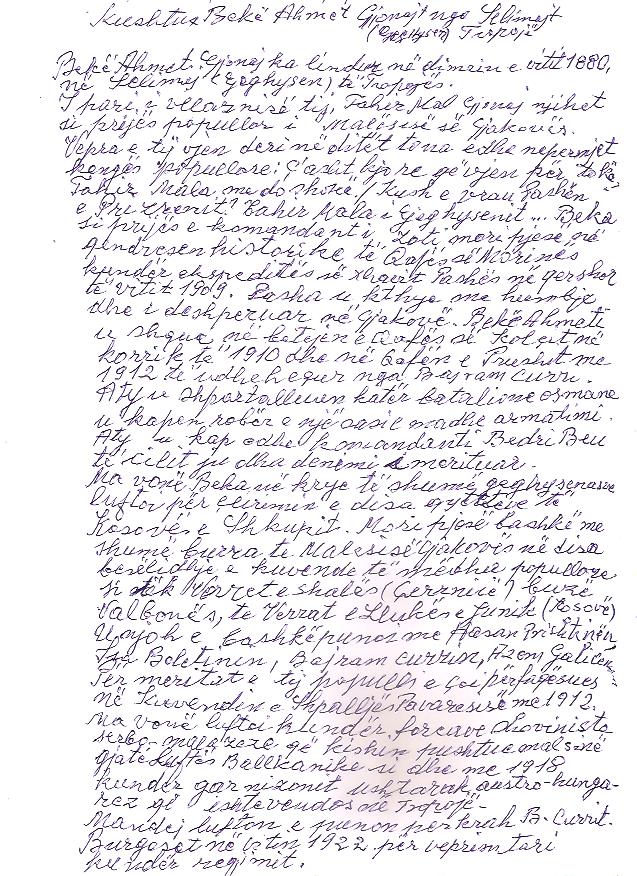 Kushtue Bekë Ahmet Gjonajt nga Selimajt
(Geghysen) Tropojë
Bekë Ahmet Gjonaj ka lindur në dimrin e vitit 1880,
në Selimaj (Geghysen) të Tropojës.
I pari i vllaznisë tij, Tahir Mal Gjonaj njihet
si prijës popullor i Malësisë së Gjakovës.
Vepra e tij vjen deri në ditët tona edhe nepermjet
kangës popullore:
Tahir Mala me do shokë / Kush e vrau Pashën
e Prizrenit? Tahir Mala i Geghysenit ... Beka
si prijës e komandant i zoti mori pjesë në
qendresen historike të Qafës së Morinës
kundër ekspeditës së Xhavit Pashës në qershor
të vitit 1909. Pasha u kthye me humbje
dhe i deshpruar në Gjakovë. Bekë Ahmeti
u shqua në betejën e Qafës së Kolçit në
korrik të 1910 dhe në Qafën e Prushit me
1912 të udhehequr nga Bajram Curri.
Aty u shpartalluen katër batalione osmane
u kapen robër e një sasi e madhe armatimi.
Aty u kap edhe komandanti Bedri Beu
të cilit ju dha denimi i merituar.
Ma vonë Beka në krye të shumë geghysenasve
luftoi për çlirimin e disa qyteteve të
Kosovës e Shkupit. Mori pjesë bashkë me
shumë burra te Malësisë Gjakovës në disa
besëlidhje e kuvende të mëdha popullore
si tek Vorret e Shalës (Gerrnicë) buzë
Valbonës, te Verrat e Lluhës e Junik (Kosovë)
U njoh e bashkëpunoi me Hasan Prishtinën
Isa Boletinin, Bajram Currin, Azem Galicën
Per meritat e tij populli e çoi përfaqësues
në Kuvendin e Shpalljes Pavaresisë me 1912.
Ma vonë luftoi kundër forcave shoviniste
serbo-malazeze që kishin pushtue malsinë
gjatë Luftës Ballkanike si dhe me 1918
kundër garnizonit ushtarak austro-hunga-
rez që ishte vendos në Tropojë.
Mandej lufton e punon perkrah B. Currit.
Burgoset në vitin 1922 për veprimtari
kundër regjimit.